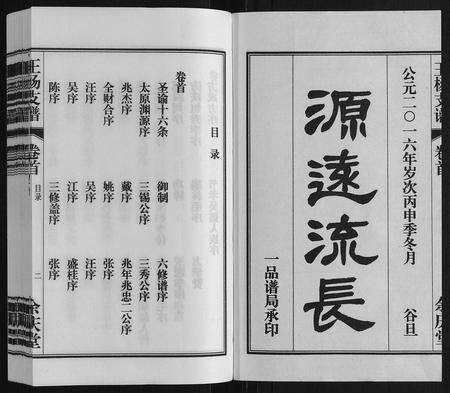 公元二〇一六年岁次丙申季冬月 谷旦
源遠流長
一品谱局承印
王杨支谱
卷首
余庆堂
目录
卷首
圣谕十六条 御制 六修谱序
太原渊源序 三锡公序 三秀公序
兆杰序 戴序 兆年兆忠二公序
全财合序 姚序 张序
汪序 吴序 汪序
吴序 江序 盛桂序
陈序 三修盖序 张序
王杨支谱
卷首
目录
二
余庆堂